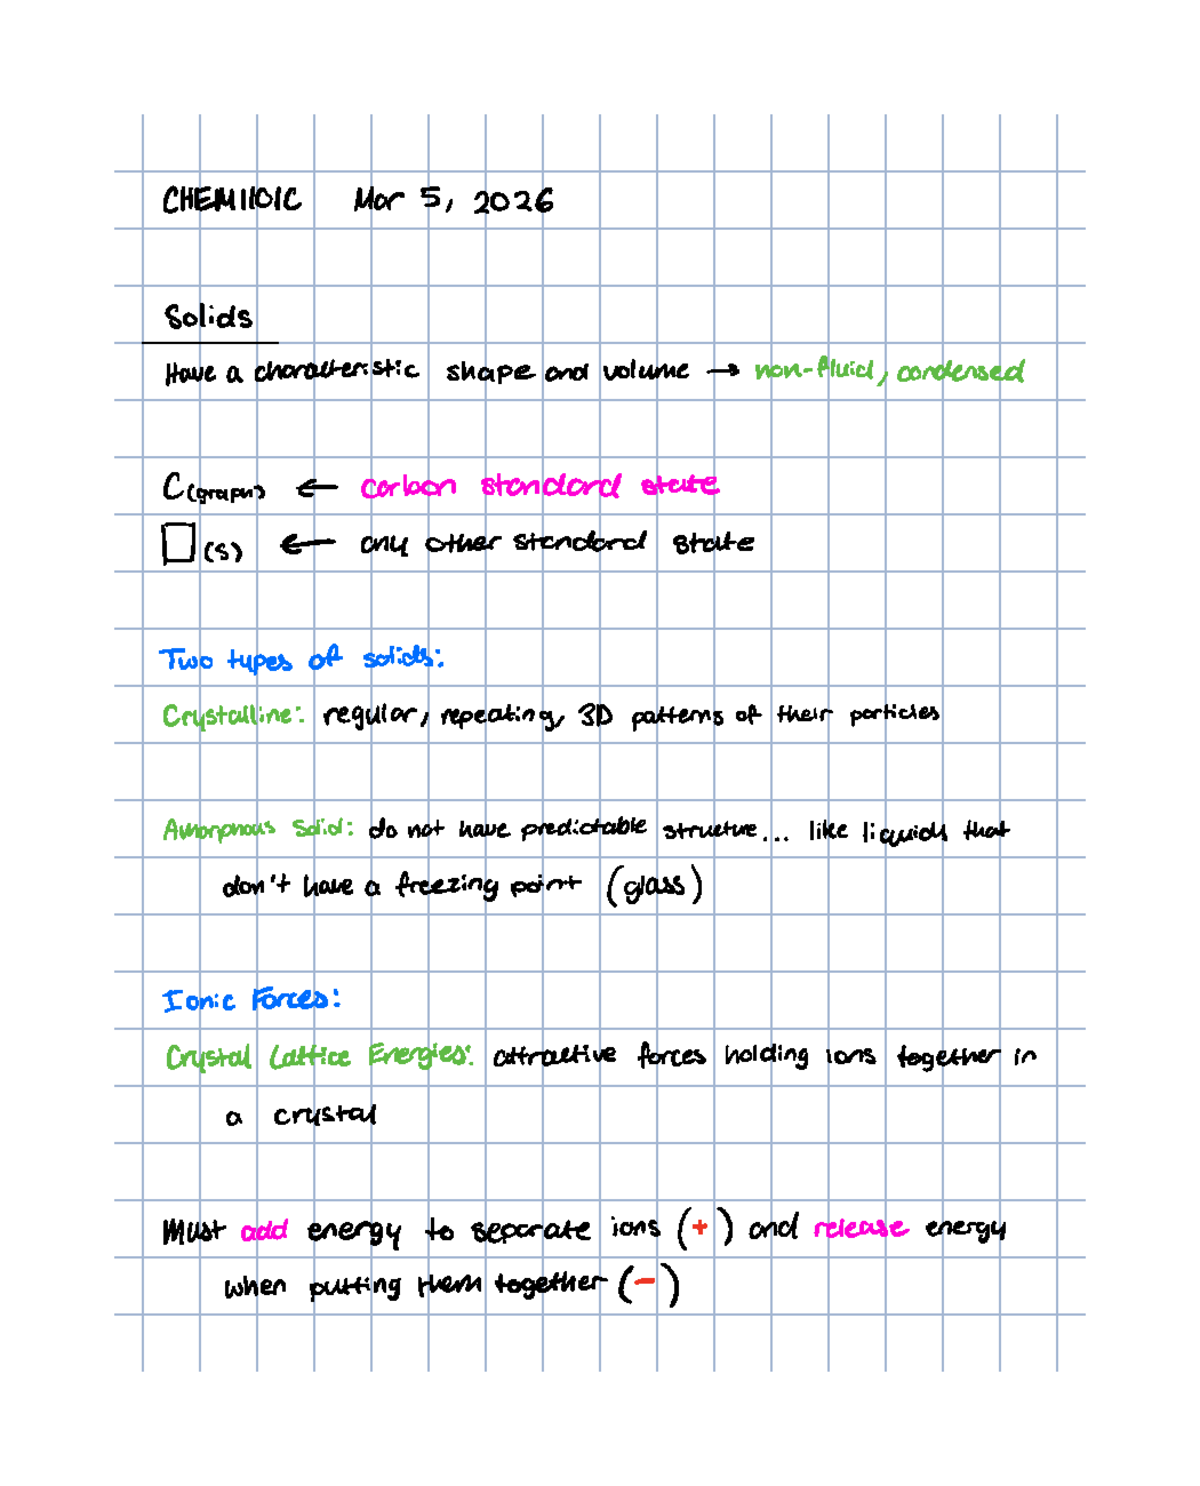 CHEM1101C Mar 5, 2026
Solids
Have a characteristic shape and volume → non-fluid, condensed
C(graph) ← carbon standard state
□(s) ← any other standard state
Two types of solids:
Crystalline: regular, repeating, 3D patterns of their particles
Amorphous Solid: do not have predictable structure... like liquids that
don't have a freezing point (glass)
Ionic Forces:
Crystal Lattice Energies: attractive forces holding ions together in
a crystal
Must add energy to separate ions (+) and release energy
when putting them together (-)